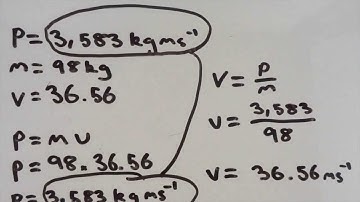 P = 3,583 kg ms⁻¹
m = 98 kg
v = 36.56
P = m v
P = 98 . 36.56
P = 3,583 kg ms⁻¹
V = P/m
V = 3,583/98
V = 36.56 ms⁻¹